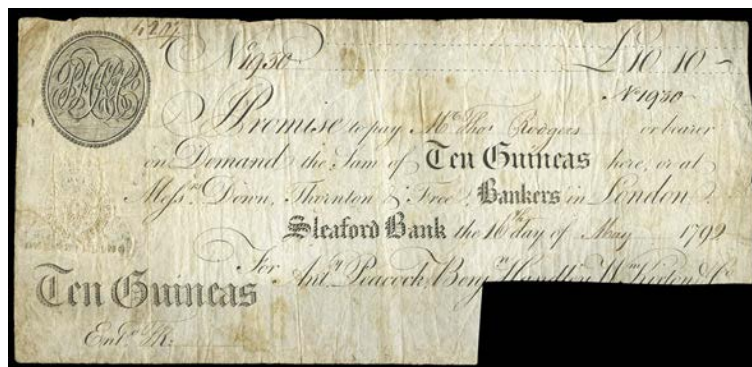 No 1930 £10 10
No 1930
Promise to pay Mr. Thos. Rodgers or bearer
on Demand the Sum of Ten Guineas here, or at
Messrs. Down, Thornton & Free, Bankers in London
Sleaford Bank the 16th day of May 1792
For Anty. Peacock, Benjn. Handley, Wm. Kirton & Co.
Ten Guineas
Entd.